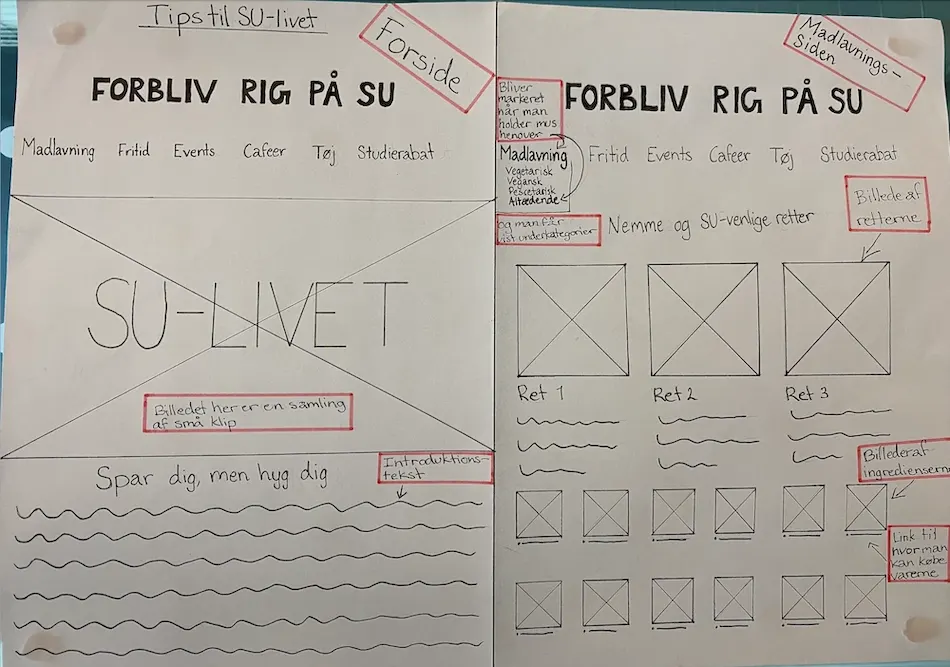 Tips til SU-livet
Forside
FORBLIV RIG PÅ SU
Madlavning Fritid Events Cafeer Tøj Studierabat
SU-LIVET
Billedet her er en samling
af små klip
Spar dig, men hyg dig
Introduktions-
tekst
Madlavnings-
Siden
Bliver
markeret
når man
holder mus
henover
FORBLIV RIG PÅ SU
Madlavning Fritid Events Cafeer Tøj Studierabat
Vegetarisk
Vegansk
Pescetarisk
Altædende
og man får
vist underkategorier
Nemme og SU-venlige retter
Billede af
retterne
Ret 1 Ret 2 Ret 3
Billeder af
ingredienserne
Link til
hvor man
kan købe
varerne